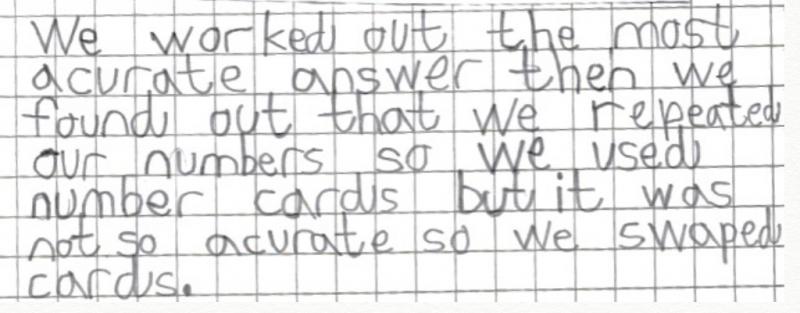 We worked out the most
acurate answer then we
found out that we repeated
our numbers so we used
number cards but it was
not so acurate so we swaped
cards.